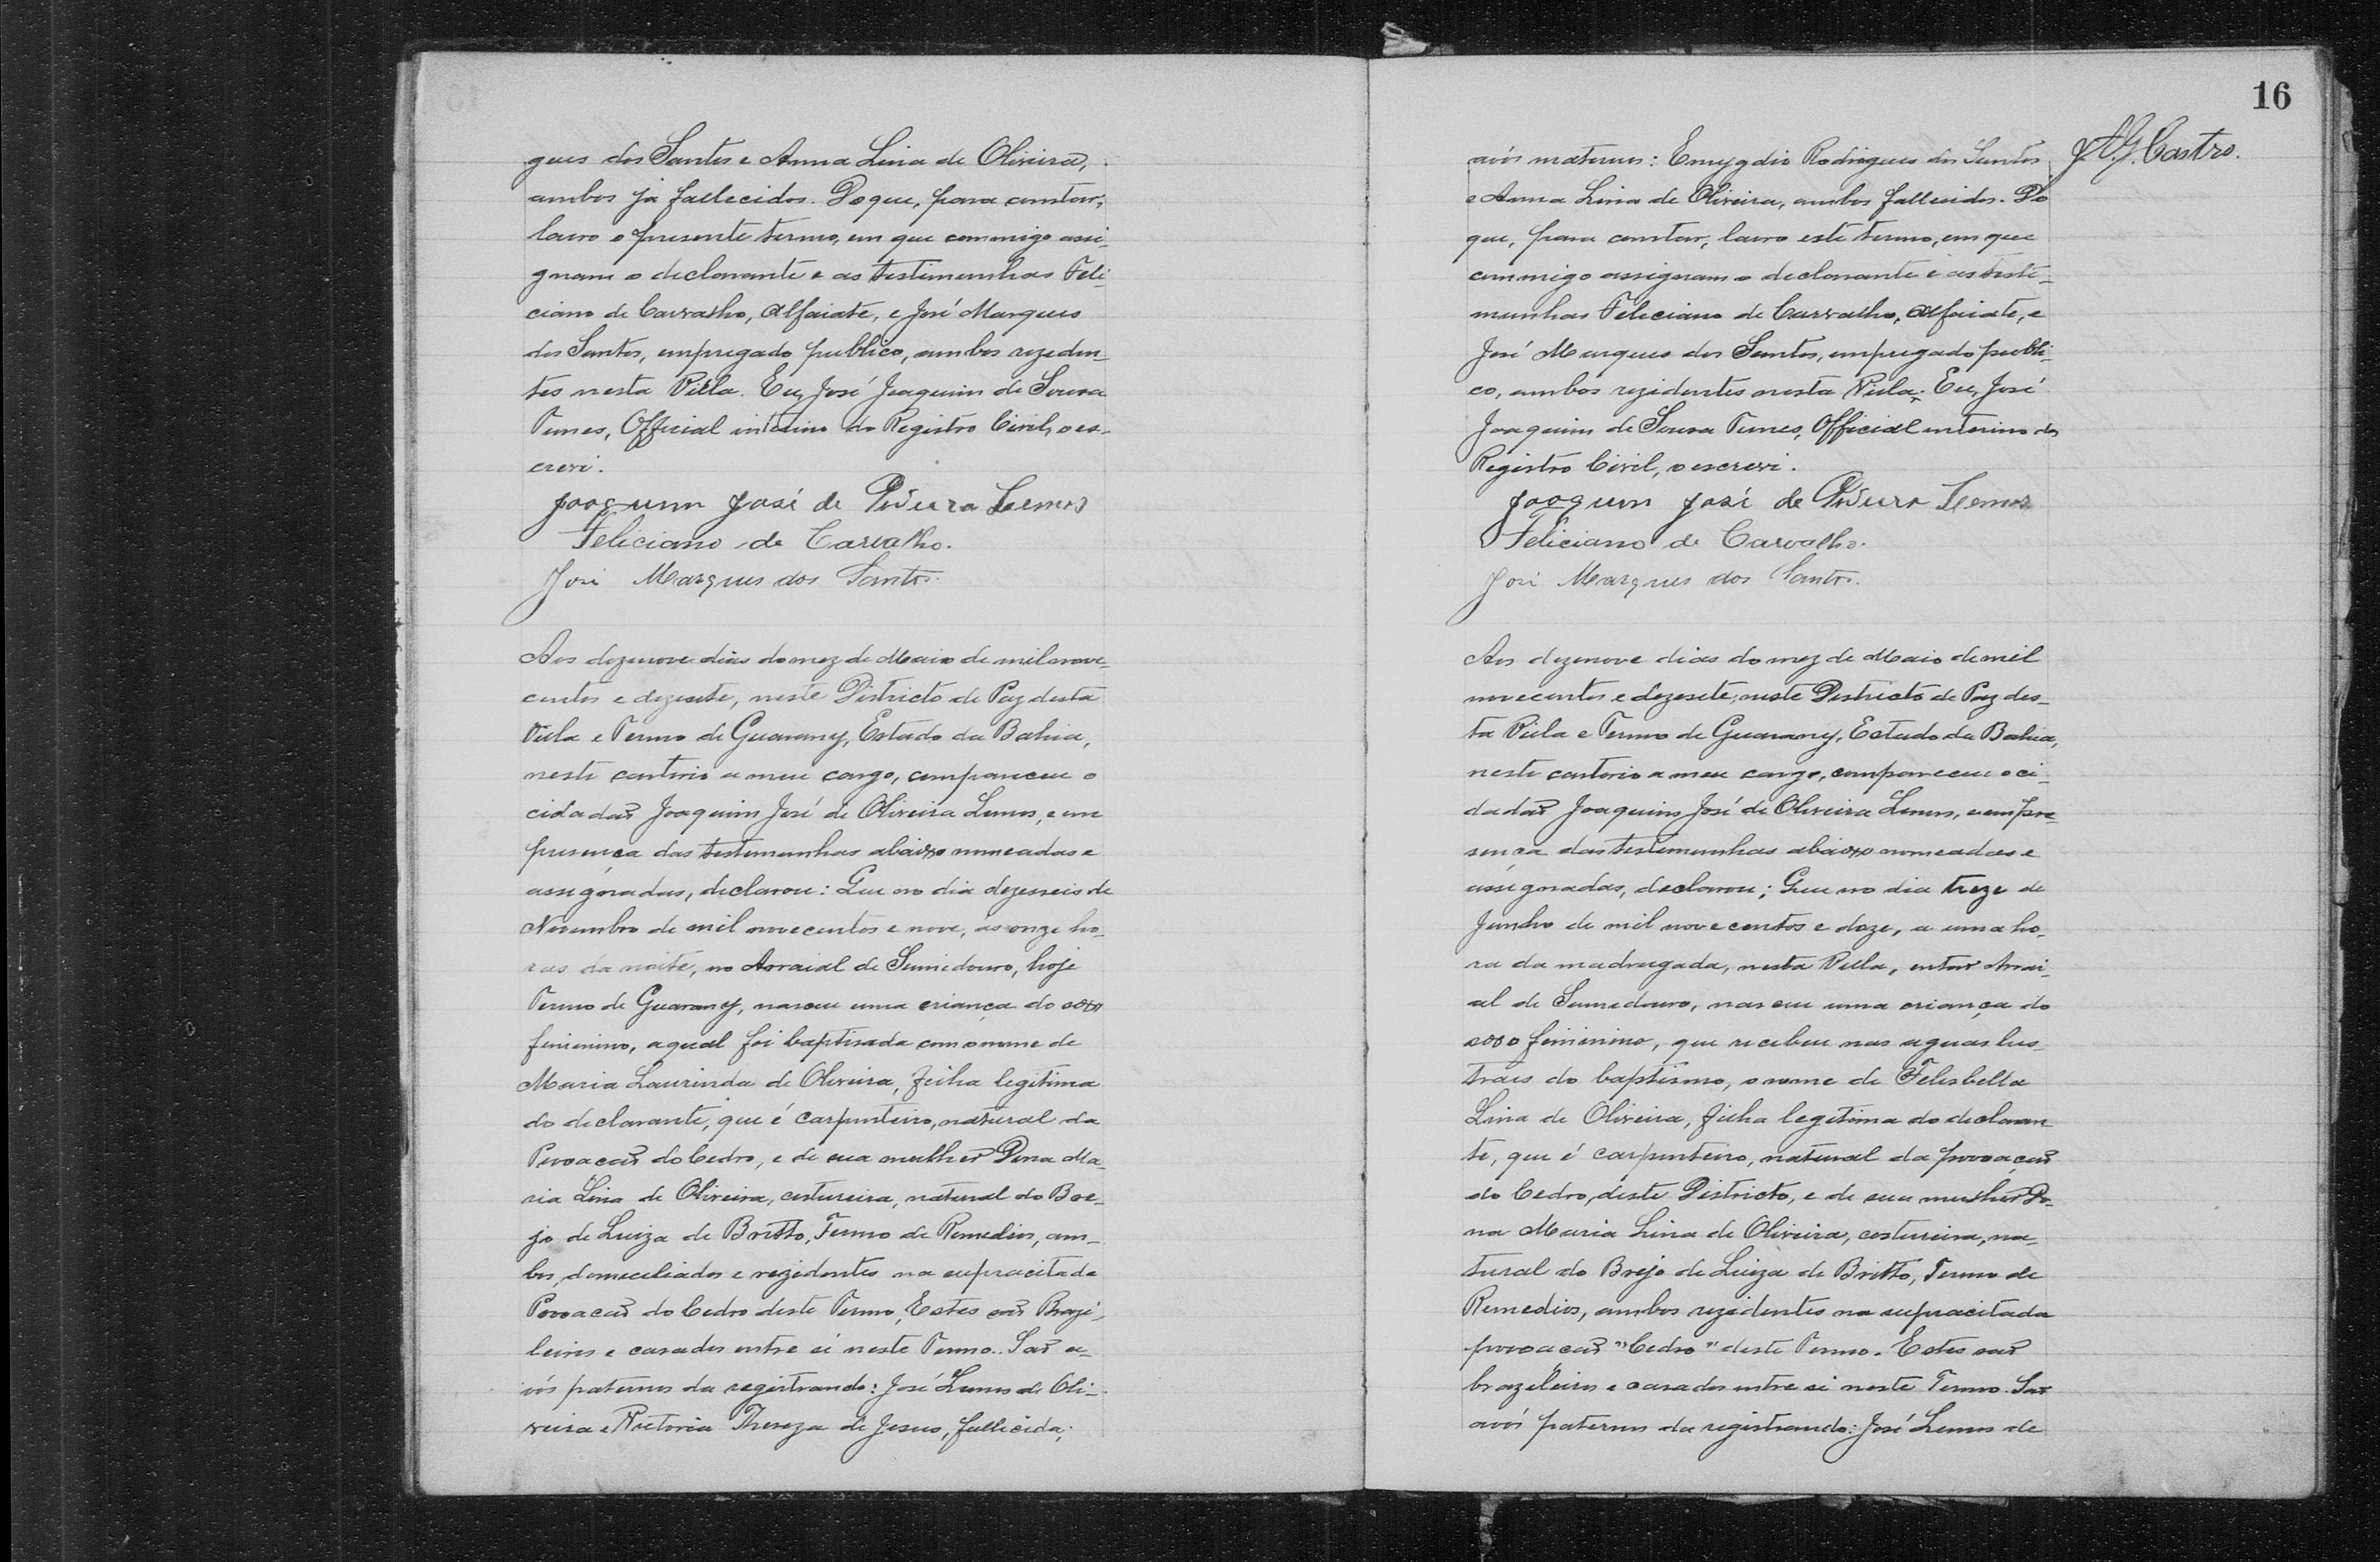 gues dos Santos e Anna Lina de Oliveira,
ambos já fallecidos. Do que, para constar,
lavro o presente termo, em que commigo assi-
gnam o declarante e as testimunhas Feli-
ciano de Carvalho, alfaiate, e José Marques
dos Santos, empregado publico, ambos reziden-
tes nesta Villa. Eu, José Joaquim de Sousa
Tunes, Official interino do Registro Civil, o es-
crevi.
Joaquim José de Oliveira Lemos
Feliciano de Carvalho.
José Marques dos Santos.
Aos dezenove dias do mez de Maio de mil nove-
centos e dezesete, neste Districto de Paz desta
Villa e Termo de Guarany, Estado da Bahia,
neste cartorio a meu cargo, compareceu o
cidadão Joaquim José de Oliveira Lemos, e em
presença das testemunhas abaixo nomeadas e
assignadas, declarou: Que no dia dezesseis de
Novembro de mil novecentos e nove, ás onze ho-
ras da noite, no Arraial de Sumidouro, hoje
Termo de Guarany, nasceu uma criança do sexo
feminino, a qual foi baptisada com o nome de
Maria Laurinda de Oliveira, filha legitima
do declarante, que é carpinteiro, natural da
Povoacão do Cedro, e de sua mulher Dona Ma-
ria Lina de Oliveira, costureira, natural do Bre-
jo de Luiza de Britto, Termo de Remedios, am-
bos, domeciliados e rezidentes na supracitada
Povoacão do Cedro deste Termo, Estes são Brazi-
leiros e casados entre si neste Termo. São a-
vós paternos da registrando: José Lemos de Oli-
veira e Victoria Thereza de Jesus, fallecida;
16
A. G. Castro.
avós maternos: Emygdio Rodrigues dos Santos
e Anna Lina de Oliveira, ambos fallecidos. Do
que, para constar, lavro este termo, em que
commigo assignam o declarante e as teste-
munhas Feliciano de Carvalho, alfaiate, e
José Marques dos Santos, empregado publi-
co, ambos rezidentes nesta Villa. Eu, José
Joaquim de Sousa Tunes, Official interino do
Registro Civil, o escrevi.
Joaquim José de Oliveira Lemos
Feliciano de Carvalho.
José Marques dos Santos.
Aos dezenove dias do mez de Maio de mil
novecentos e dezesete, neste Districto de Paz des-
ta Villa e Termo de Guarany, Estado da Bahia,
neste cartorio a meu cargo, compareceu o ci-
dadão Joaquim José de Oliveira Lemos, e em pre-
sença das testemunhas abaixo nomeadas e
assignadas, declarou: Que no dia treze de
Junho de mil novecentos e doze, a uma ho-
ra da madrugada, nesta Villa, então Arrai-
al de Sumidouro, nasceu uma criança do
sexo feminino, que recebeu nas aguas lus-
traes do baptismo, o nome de Felisbella
Lina de Oliveira, filha legitima do declaran-
te, que é carpinteiro, natural da povoação
do Cedro, deste Districto, e de sua mulher Do-
na Maria Lina de Oliveira, costureira, na-
tural do Brejo de Luiza de Britto, Termo de
Remedios, ambos rezidentes na supracitada
povoacão "Cedro" deste Termo. Estes são
brazileiros e casados entre si neste Termo. São
avós paternos da registrando: José Lemos de